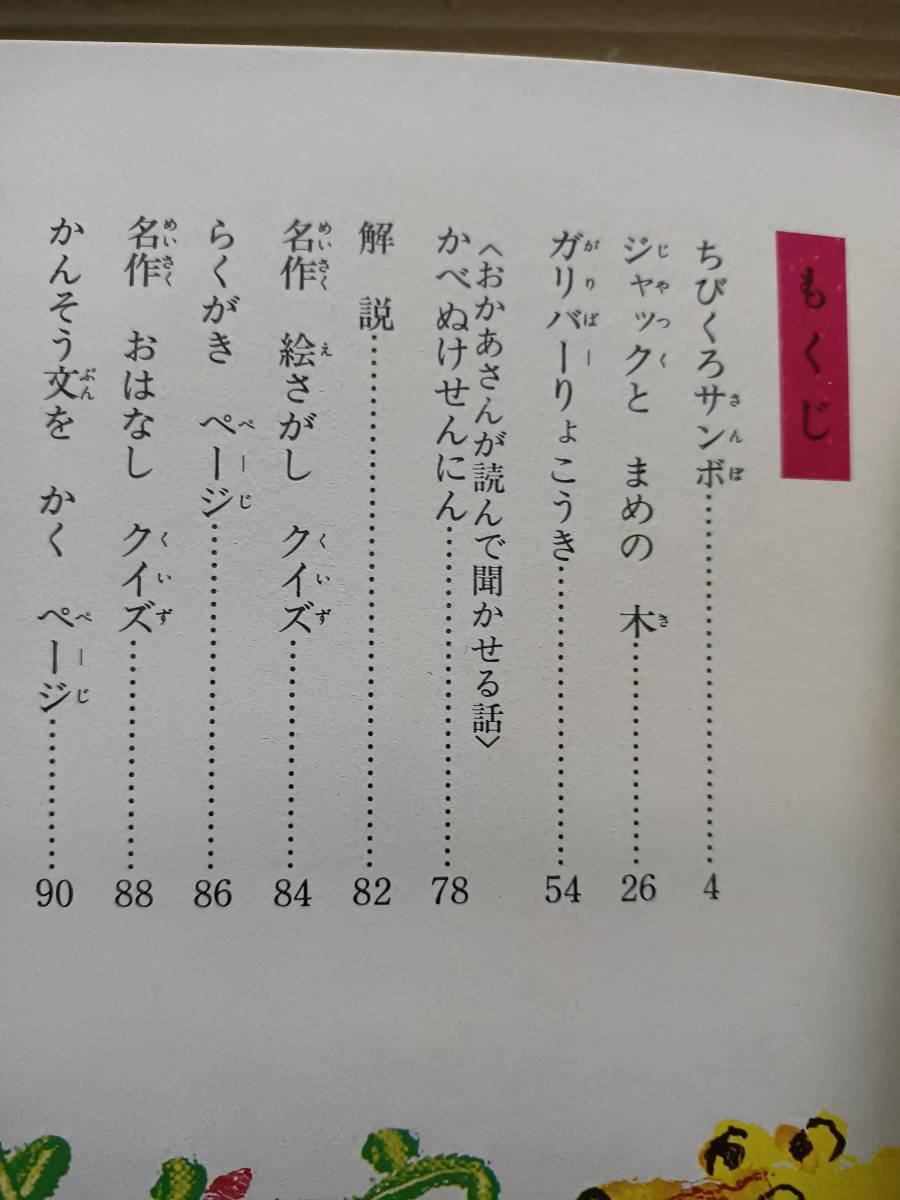 もくじ
ちびくろサンボ……………4
ジャックと まめの 木……………26
ガリバーりょこうき……………54
〈おかあさんが読んで聞かせる話〉
かべぬけせんにん……………78
解 説……………82
名作 絵さがし クイズ……………84
らくがき ページ……………86
名作 おはなし クイズ……………88
かんそう文を かく ページ……………90